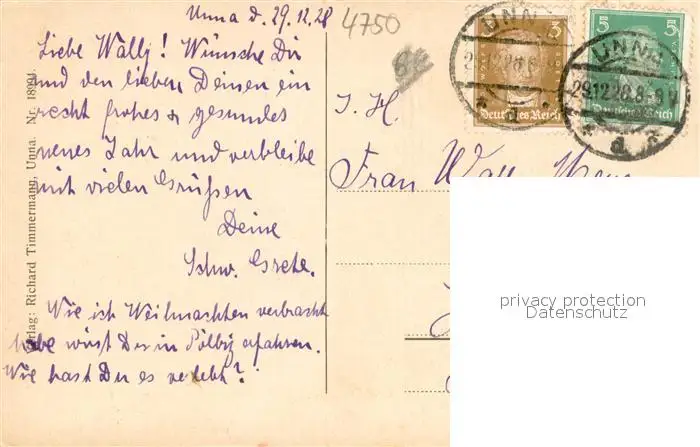 Unna d. 29.12.28
4750
Liebe Wally! Wünsche Dir
und den lieben Deinen ein
recht frohes & gesundes
neues Jahr und verbleibe
mit vielen Grüßen
Deine
Schw. Grete.
Wie ich Weihnachten verbracht
habe wirst Du in erfahren.
Wie hast Du es verlebt?
Verlag: Richard Timmermann, Unna. Nr.
3
Deutsches Reich
5
5
Deutsches Reich
UNNA
29.12.28.8-9V
d
I. H.
Frau
privacy protection
Datenschutz